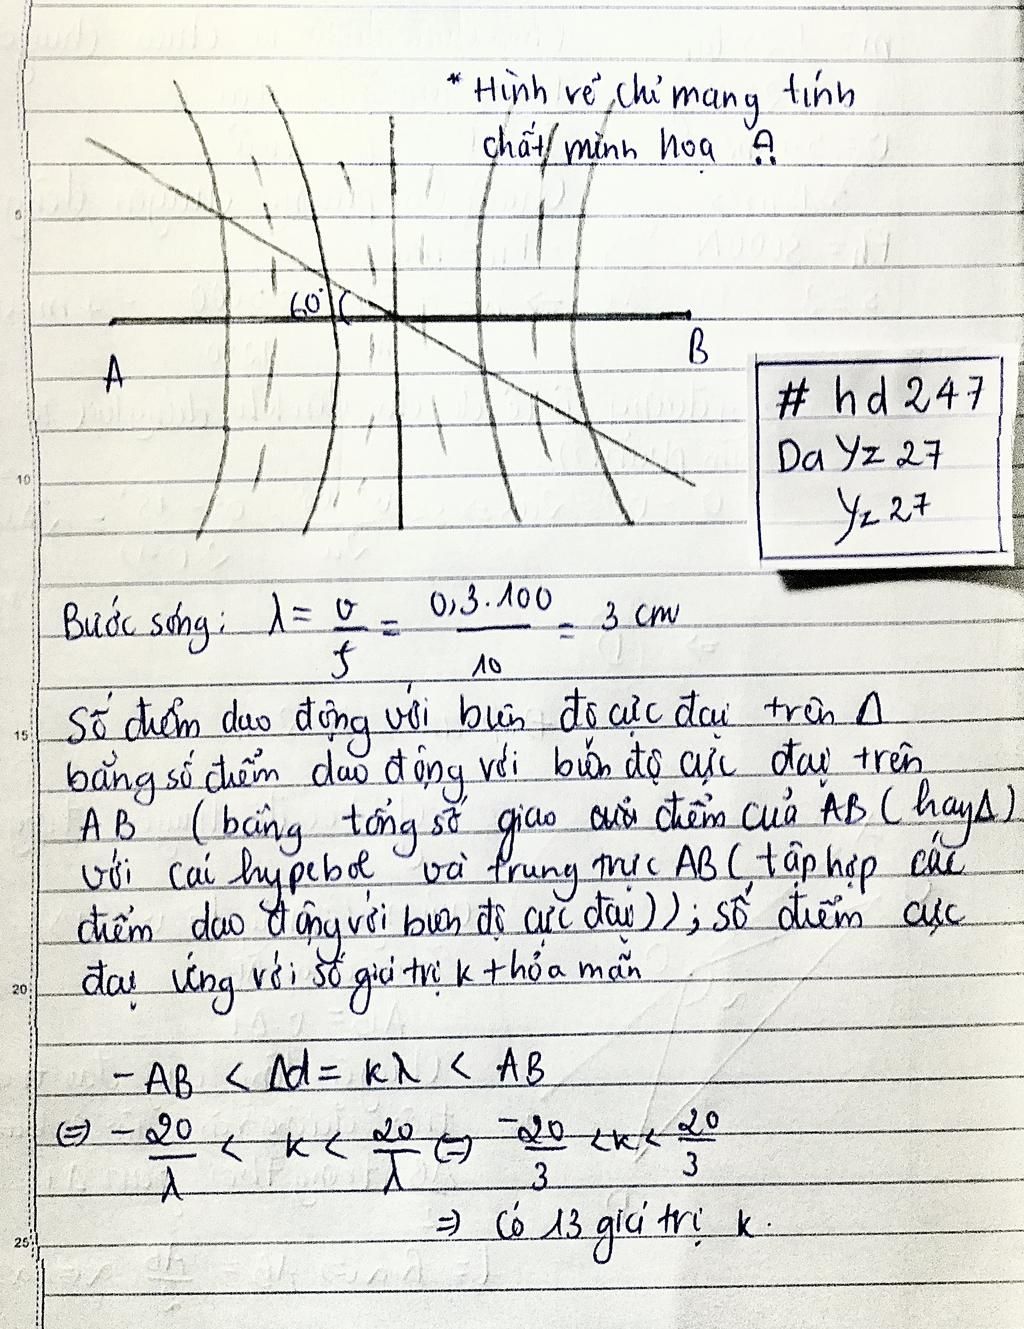 * Hình vẽ chỉ mang tính
chất minh hoạ
60°
A
B
# hd 247
Da Yz 27
Yz 27
Bước sóng: λ = v/f = 0,3.100/10 = 3 cm
Số điểm dao động với biên độ cực đại trên Δ
bằng số điểm dao động với biên độ cực đại trên
AB (bằng tổng số giao điểm của AB (hay Δ)
với các hypebol và trung trực AB (tập hợp các
điểm dao động với biên độ cực đại)); số điểm cực
đại ứng với số giá trị k thỏa mãn
- AB < Δd = kλ < AB
⇔ - 20/λ < k < 20/λ ⇔ -20/3 < k < 20/3
⇒ Có 13 giá trị k.
5
10
15
20
25